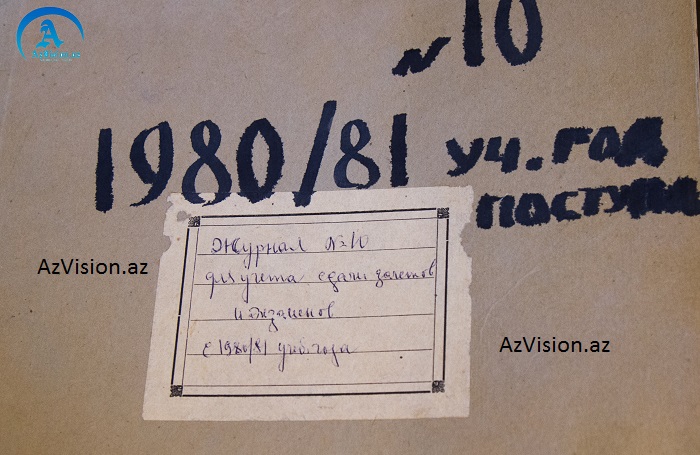 №10
1980/81 уч. год
поступл
Журнал №10
для учета сдачи зачетов
и экзаменов
с 1980/81 учеб. года
AzVision.az
AzVision.az